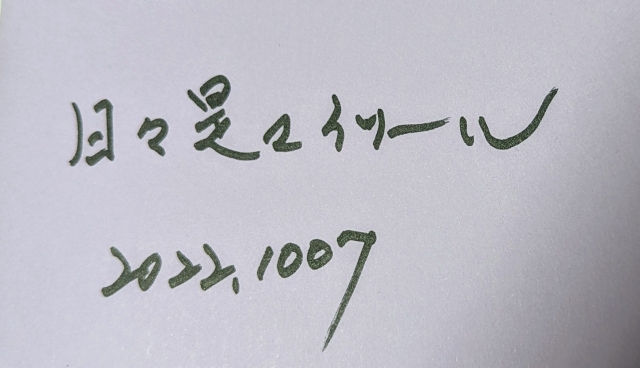 日々是マイツール
2022.1007